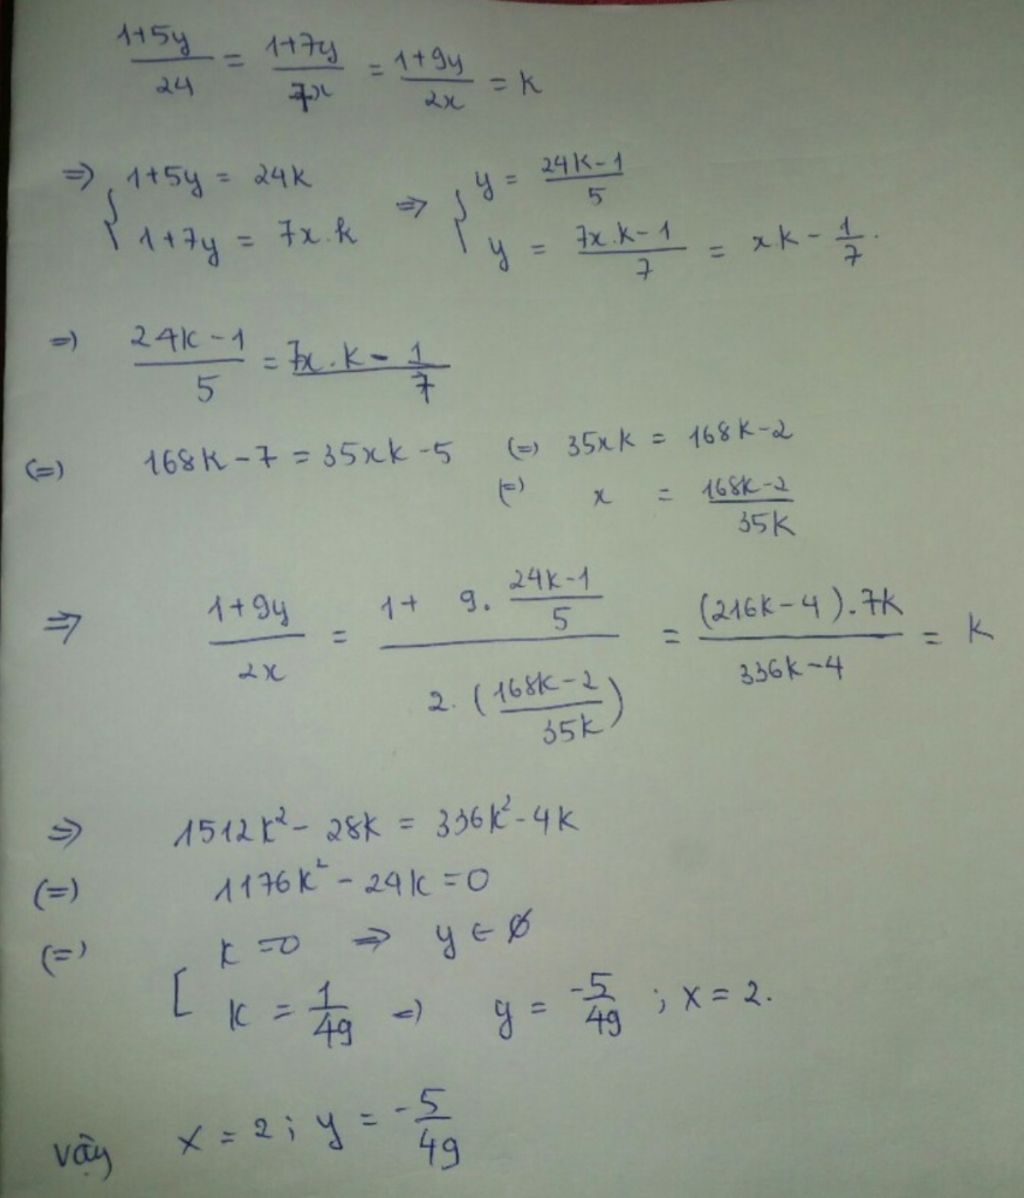 (1+5y)/24 = (1+7y)/(7x) = (1+9y)/(2x) = k
⇒ { 1+5y = 24k ⇒ { y = (24k-1)/5
1+7y = 7x.k y = (7x.k-1)/7 = xk - 1/7.
⇒ (24k-1)/5 = (7x.k-1)/7
(=) 168k-7 = 35xk-5 (=) 35xk = 168k-2
(=) x = (168k-2)/(35k)
⇒ (1+9y)/(2x) = (1+ 9. (24k-1)/5)/(2.((168k-2)/(35k))) = ((216k-4).7k)/(336k-4) = k
⇒ 1512k² - 28k = 336k² - 4k
(=) 1176k² - 24k = 0
(=) [ k = 0 ⇒ y ∈ ∅
k = 1/49 ⇒ y = -5/49 ; x = 2.
vậy x = 2 ; y = -5/49